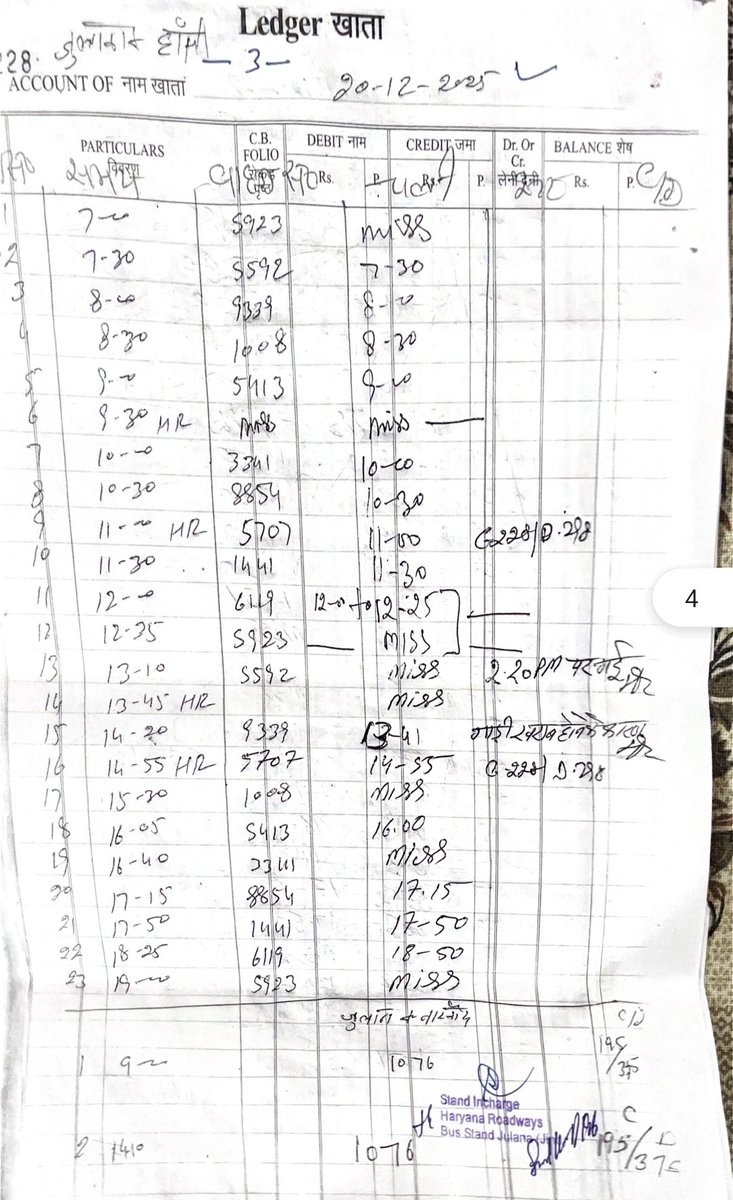 Ledger खाता
28. जुलाना हाँसी - 3 -
ACCOUNT OF नाम खाता 20-12-2025
PARTICULARS विवरण C.B. FOLIO पृष्ठ DEBIT नाम Rs. P. CREDIT जमा Rs. P. Dr. Or Cr. लेनी देनी BALANCE शेष Rs. P.
समय C/D
1 7-00 5923 miss
2 7-30 5592 7-30
3 8-00 9339 8-00
4 8-30 1008 8-30
5 9-00 5413 9-00
6 9-30 HR miss miss
7 10-00 3341 10-00
8 10-30 8854 10-30
9 11-00 HR 5707 11-00 C 228/D.298
10 11-30 1441 11-30
11 12-00 6119 12-0 to 12-25
12 12-35 5923 miss
13 13-10 5592 miss 2.20 PM पर गई
14 13-45 HR miss
15 14-20 9339 13-41 गाड़ी खराब होने के कारण
16 14-55 HR 5707 14-55 C 228/D.298
17 15-30 1008 miss
18 16-05 5413 16.00
19 16-40 3341 miss
20 17-15 8854 17.15
21 17-50 1441 17-50
22 18-25 6119 18-50
23 19-00 5923 miss
जुलाना से नारनौंद C/D
1 9-00 1076 195/375
Stand Incharge
Haryana Roadways
Bus Stand Julana (Ji
C D
2 1410 1076 195/375
4